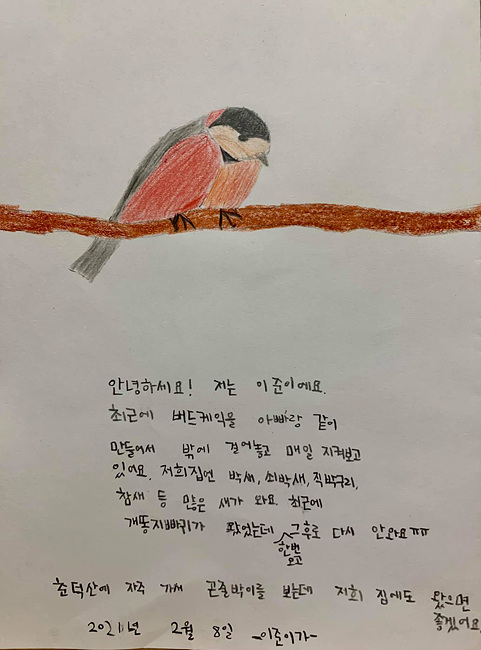 안녕하세요! 저는 이준이에요.
최근에 버드케익을 아빠랑 같이
만들어서 밖에 걸어놓고 매일 지켜보고
있어요. 저희집엔 박새, 쇠박새, 직박구리,
참새 등 많은 새가 와요. 최근에
개똥지빠귀가 왔었는데 그후로 다시 안와요ㅠㅠ
한번
오고
춘덕산에 자주 가서 곤줄박이를 보는데 저희 집에도 왔으면
좋겠어요.
2021년 2월 8일 -이준이가-